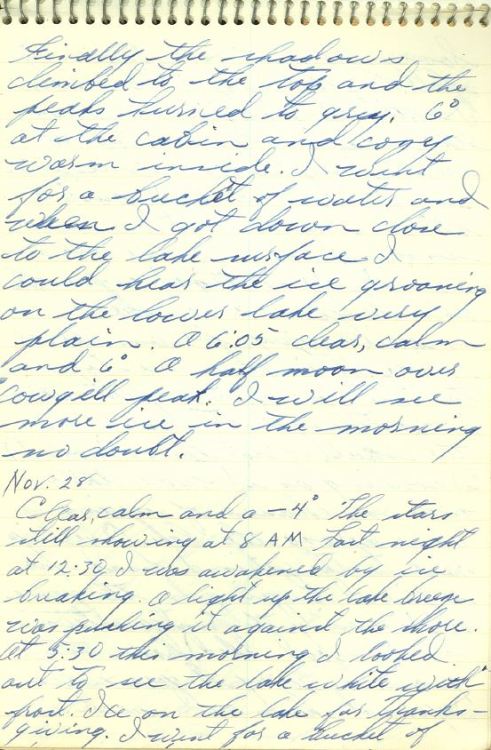 Finally the shadows
climbed to the top and the
peaks turned to grey. 6°
at the cabin and cozy
warm inside. I went
for a bucket of water and
when I got down close
to the lake surface I
could hear the ice groaning
on the lower lake very
plain. A 6:05 clear, calm
and 6° A half moon over
Cowgill peak. I will see
more ice in the morning
no doubt.
Nov. 28
Clear, calm and a -4° The stars
still showing at 8 AM Last night
at 12:30 I was awakened by ice
breaking. A light up the lake breeze
was pushing it against the shore.
At 5:30 this morning I looked
out to see the lake white with
frost. Ice on the lake for thanks-
giving. I went for a bucket of